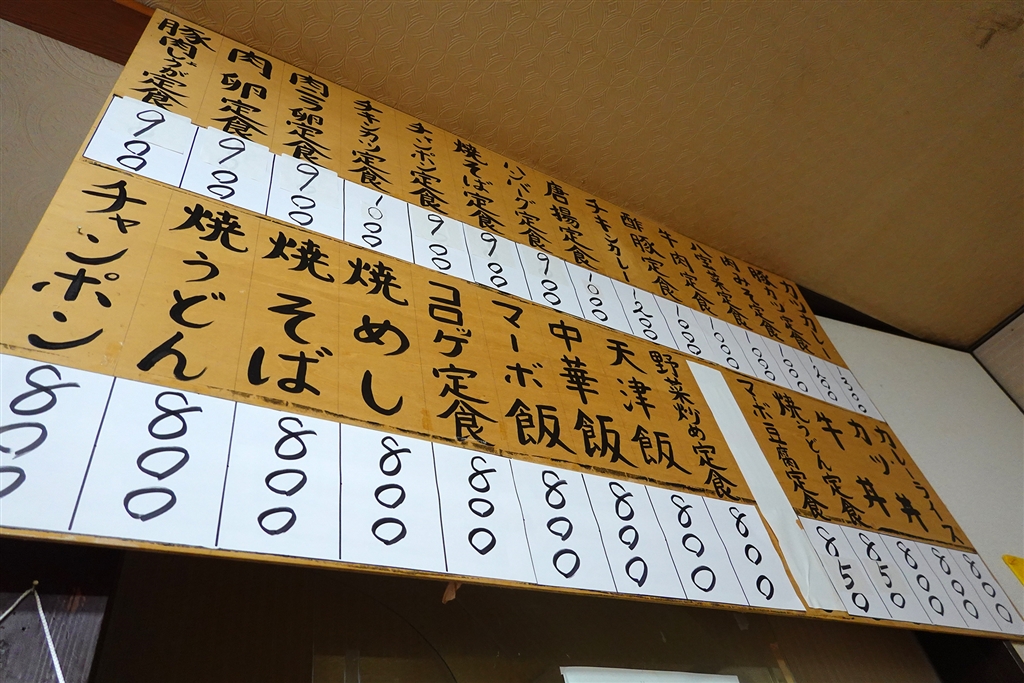 カツカレー
1300
豚カツ定食
1200
肉みそ定食
1000
八宝菜定食
1000
牛肉定食
1000
酢豚定食
1000
チキンカレー
1200
唐揚定食
1000
ハンバーグ定食
900
焼そば定食
900
チャンポン定食
900
チキンカツ定食
1000
肉ニラ卵定食
900
肉卵定食
900
豚肉しょうが定食
900
カレーライス
800
カツ丼
800
牛丼
800
焼うどん定食
850
マーボ豆腐定食
850
野菜炒め定食
800
天津飯
800
中華飯
800
マーボ飯
800
コロッケ定食
800
焼めし
800
焼そば
800
焼うどん
800
チャンポン
800